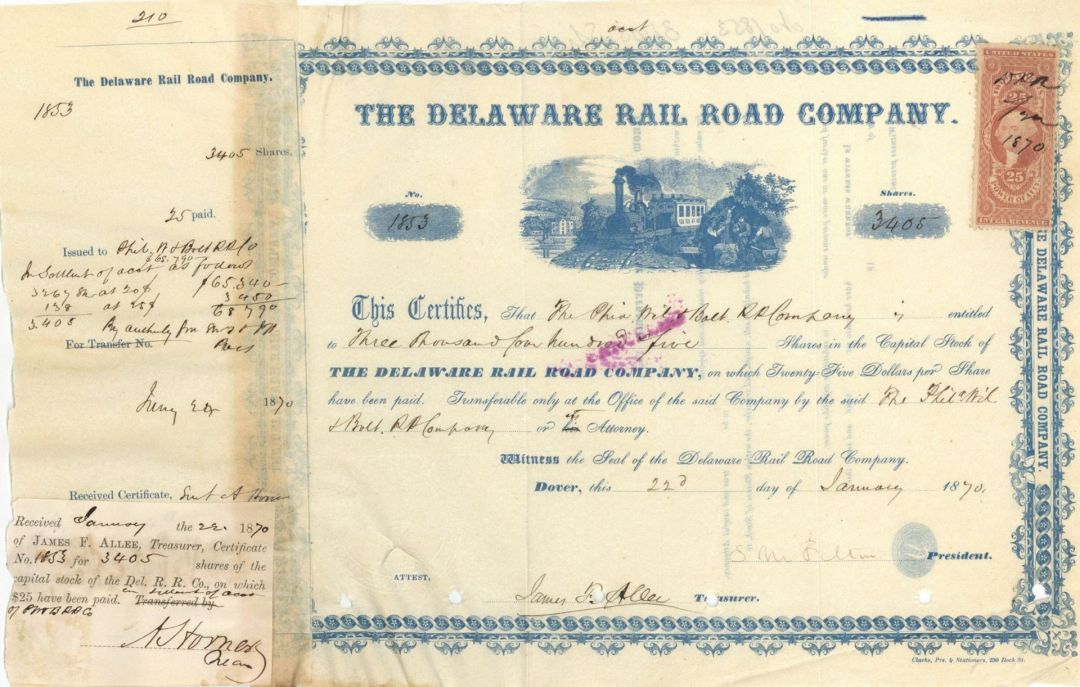 210
The Delaware Rail Road Company.
1853
3405 Shares,
25 paid.
Issued to Phil. W & Balt RR Co
$65.790
In Settlent of acct as follows
3267 Sh at 20$ $65.340
138 at 25$ 3.450
3.405 68790
By authority from
For Transfer No.
1870
Received Certificate,
Received January the 22 1870
of JAMES F. ALLEE, Treasurer, Certificate
No. 1853 for 3405 shares of the
capital stock of the Del. R. R. Co., on which
$25 have been paid. Transferred by
in Settlent of acct
of PW&BRRCo
A Horner
acct
THE DELAWARE RAIL ROAD COMPANY.
No. Shares.
1853 3405
This Certifies, That The Phia Wil & Balt RR Company is entitled
to Three Thousand four hundred & five Shares in the Capital Stock of
THE DELAWARE RAIL ROAD COMPANY, on which Twenty-Five Dollars per Share
have been paid. Transferable only at the Office of the said Company by the said The Phila Wil
& Balt. RR Company or Attorney.
Witness the Seal of the Delaware Rail Road Company.
Dover, this 22d day of January 1870.
S M Felton President.
ATTEST,
James F. Allee Treasurer.
Clarks, Prs. & Stationers, 230 Dock St.
UNITED STATES
25 25
1870
25
POWER OF ATT'Y
INTER. REVENUE
THE DELAWARE RAIL ROAD COMPANY.
THE DELAWARE RAIL ROAD COMPANY.